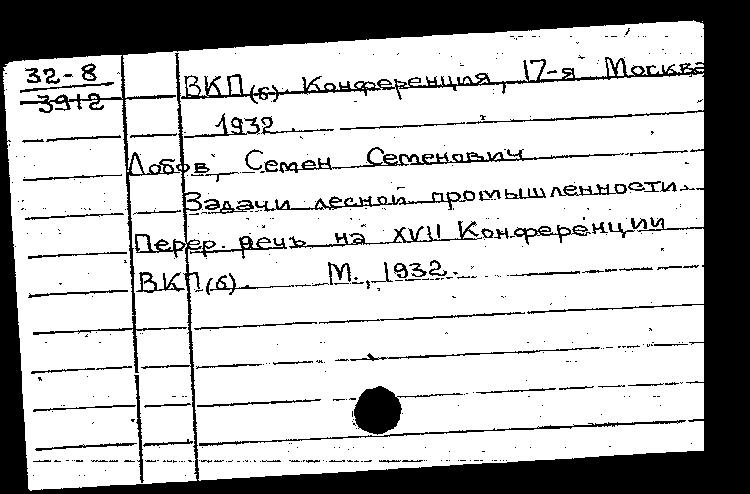 32-8
3912
ВКП(б). Конференция, 17-я Москва
1932.
Лобов, Семен Семенович
Задачи лесной промышленности.
Перер. речь на XVII Конференции
ВКП(б). М., 1932.